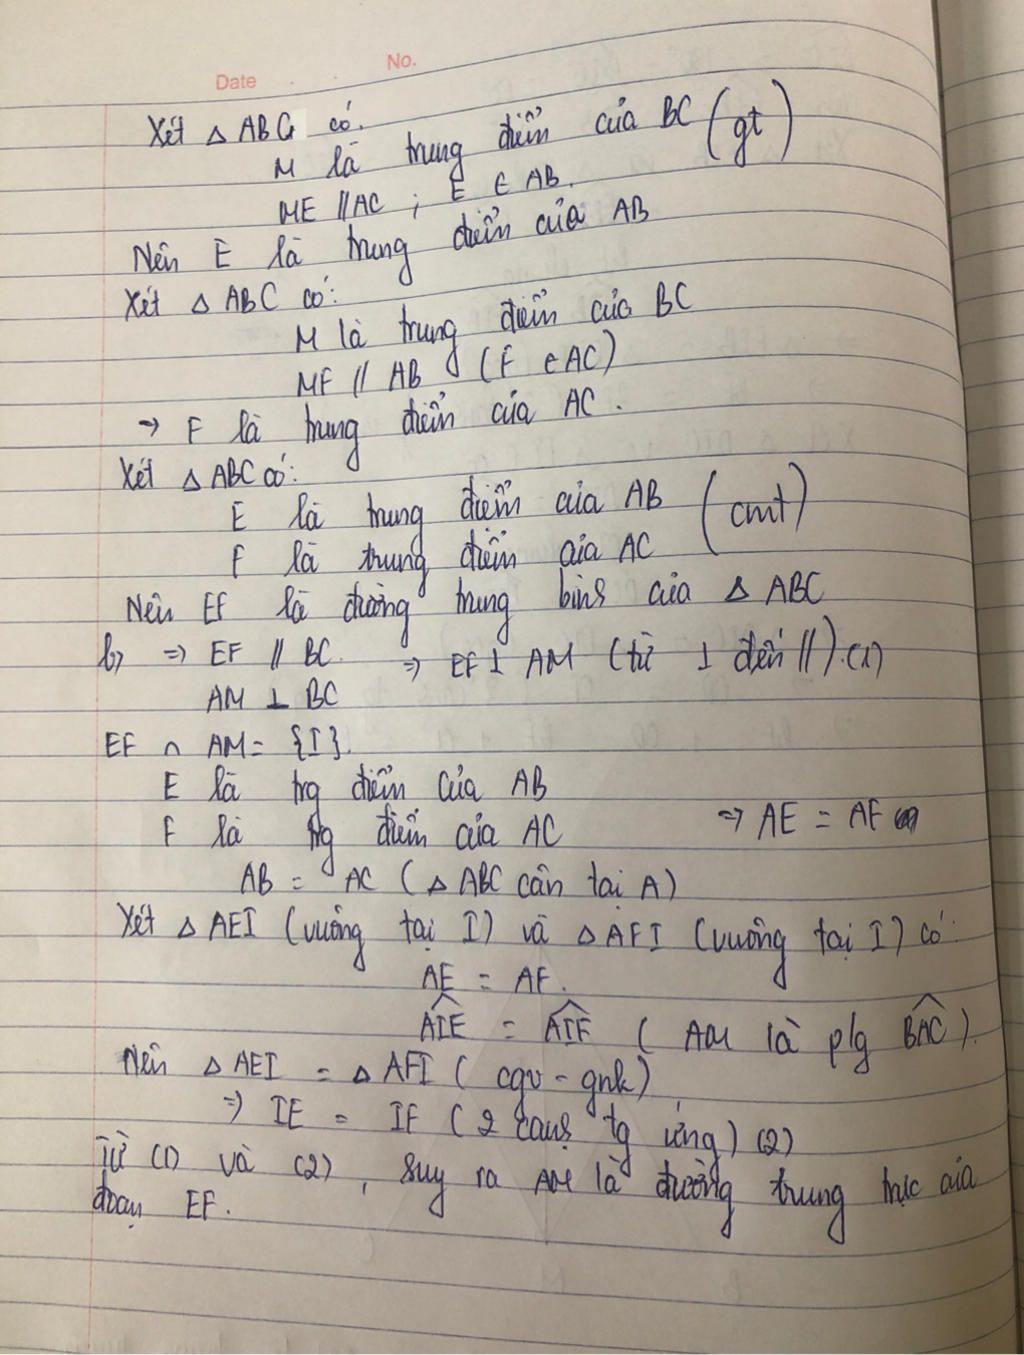 Date No.
Xét △ ABC có:
M là trung điểm của BC (gt)
ME // AC ; E ∈ AB.
Nên E là trung điểm của AB
Xét △ ABC có:
M là trung điểm của BC
MF // AB (F ∈ AC)
→ F là trung điểm của AC.
Xét △ ABC có:
E là trung điểm của AB (cmt)
F là trung điểm của AC
Nên EF là đường trung bình của △ ABC
b) ⇒ EF // BC. ⇒ EF ⊥ AM (từ ⊥ đến //). (1)
AM ⊥ BC
EF ∩ AM = {I}.
E là trg điểm của AB
F là trg điểm của AC ⇒ AE = AF
AB = AC (△ ABC cân tại A)
Xét △ AEI (vuông tại I) và △ AFI (vuông tại I) có:
AE = AF.
AIE = AIF (AM là p/g BAC).
Nên △ AEI = △ AFI (cgv - gnk)
⇒ IE = IF (2 cạnh tg ứng) (2)
Từ (1) và (2), suy ra AM là đường trung trực của
đoạn EF.